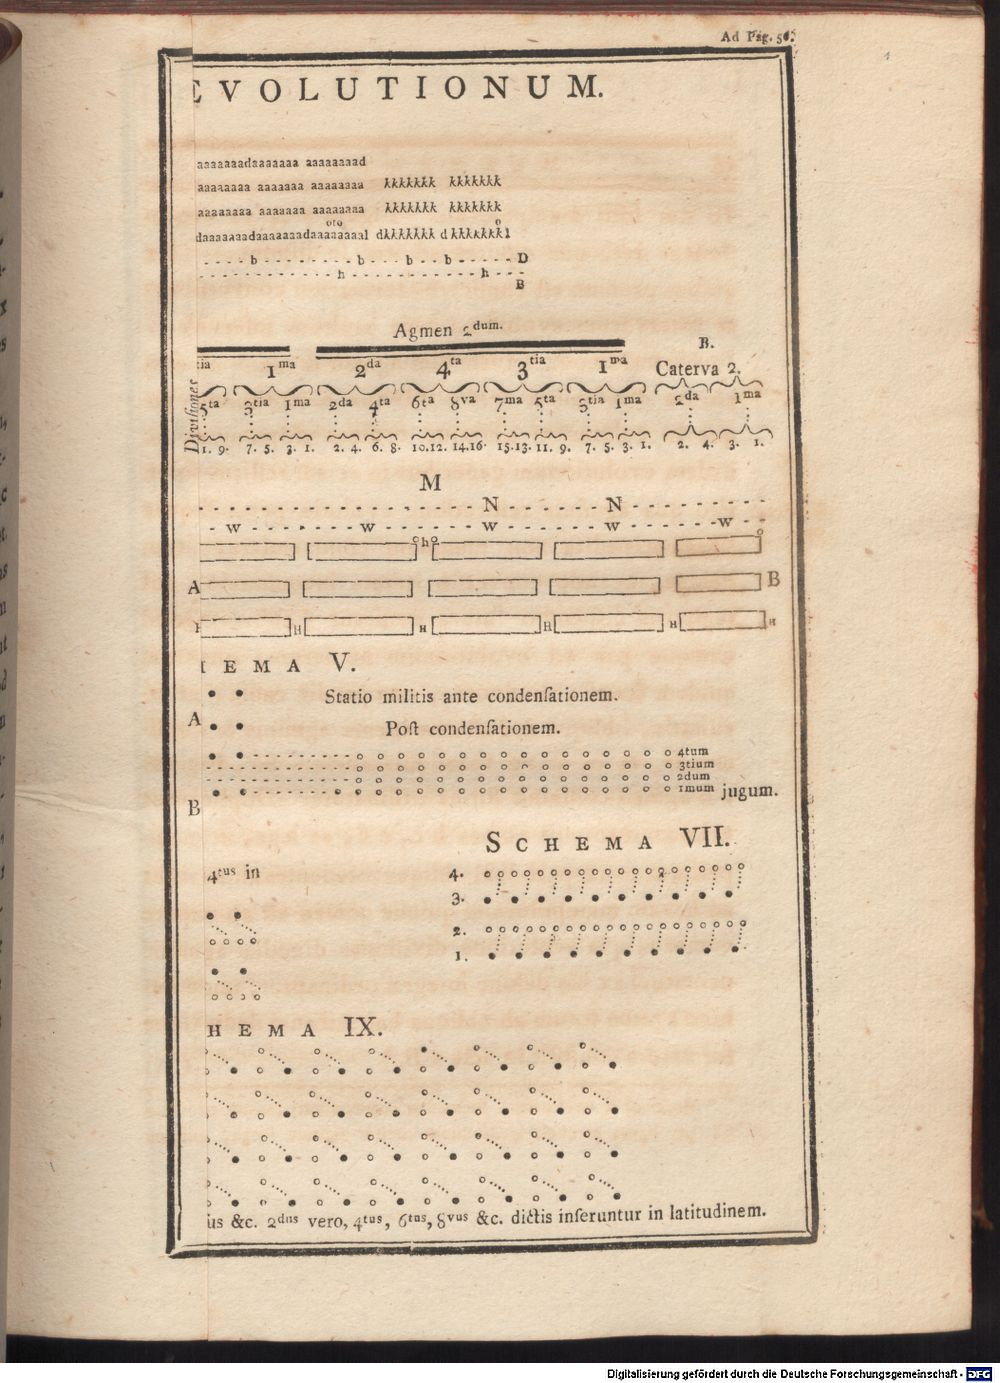 Ad Pag. 56.
EVOLUTIONUM.
aaaaaaadaaaaaaa aaaaaaaad
aaaaaaaa aaaaaaa aaaaaaaa kkkkkkk kkkkkkk
aaaaaaaa aaaaaaa aaaaaaaa kkkkkkk kkkkkkk
oto o
daaaaaaadaaaaaaadaaaaaaaal dkkkkkkk dkkkkkkkl
b b b b D
h h
B
Agmen 2dum.
B.
tia 1ma 2da 4ta 3tia 1ma Caterva 2.
Divisiones
5ta 3tia 1ma 2da 4ta 6ta 8va 7ma 5ta 3tia 1ma 2da 1ma
1. 9. 7. 5. 3. 1. 2. 4. 6. 8. 10.12. 14.16. 15.13. 11. 9. 7. 5. 3. 1. 2. 4. 3. 1.
M
N N
w w w w w
o h o o
A B
H H H H H
EMA V.
Statio militis ante condenſationem.
A
Poſt condenſationem.
4tum
3tium
2dum
1mum jugum.
B
SCHEMA VII.
4tus in
4.
3.
2.
1.
HEMA IX.
us &c. 2dus vero, 4tus, 6tus, 8vus &c. dictis inſeruntur in latitudinem.
Digitalisierung gefördert durch die Deutsche Forschungsgemeinschaft - DFG